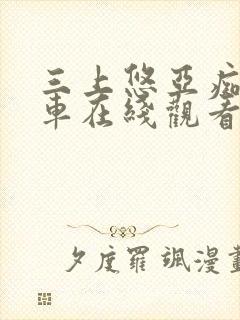 三上悠亞痴
車在綫觀看
夕度羅颯漫畫